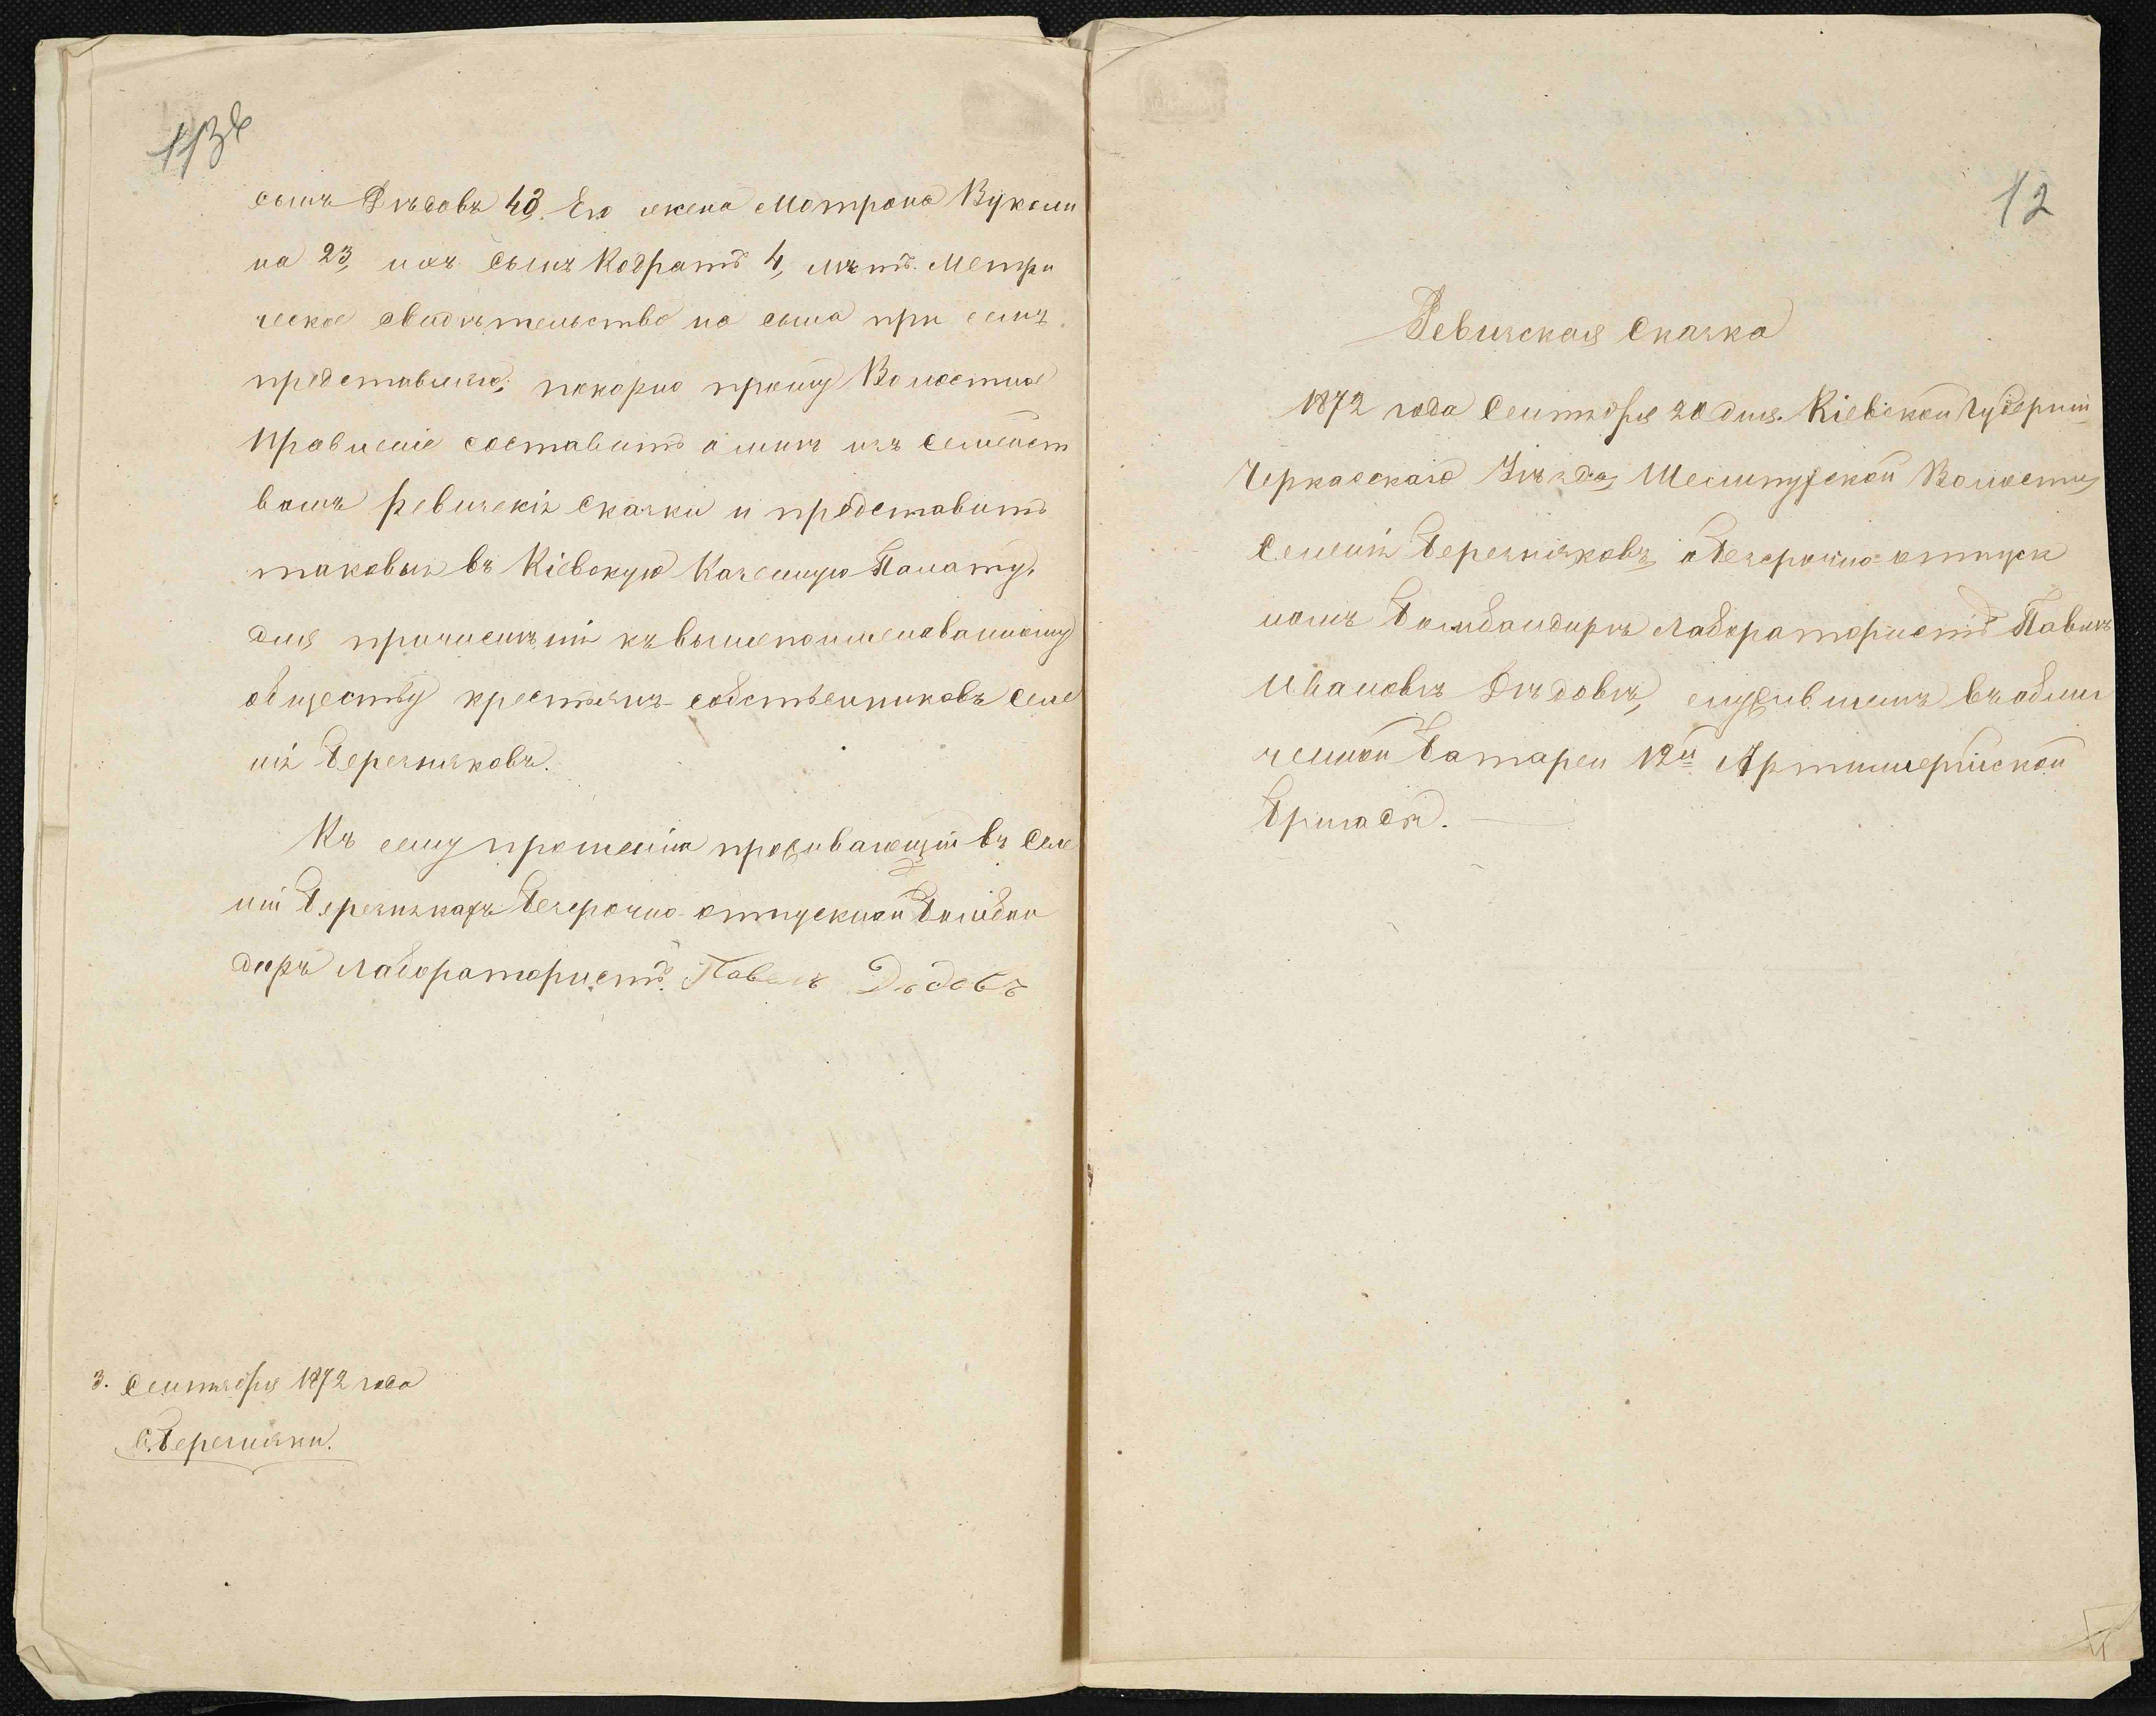 сынъ Дѣдовъ 40. Его жена Мотрона Вукали
на 23, ихъ сынъ Кодратъ 4, лѣтъ. Метри
ческое свидѣтельство на сына при семъ
представляю; покорно прошу Волостное
Правленіе составить о мнѣ изъ семейст
вомъ ревизскія сказки и представить
таковыя въ Кіевскую Казенную Палату,
для причисленія къ вышепоименованному
обществу крестьянъ-собственниковъ селе
нія Березняковъ.
Къ сему прошенію проживающій въ Селе
ніи Березнякахъ безсрочно-отпускной бомбон
деръ Лаборатористъ Павелъ Дѣдовъ
3. Сентября 1872 года
С. Березняки.
12
Ревизская Сказка
1872 года Сентября 20 дня. Кіевской Губерніи
Черкасскаго Уѣзда, Волости,
Селенія Березняковъ, о безсрочно-отпуск
номъ бомбандирѣ Лаборатористѣ Павлѣ
Ивановѣ Дѣдовѣ, служившемъ въ облег
ченной батареи 12й Артиллерійской
бригады.